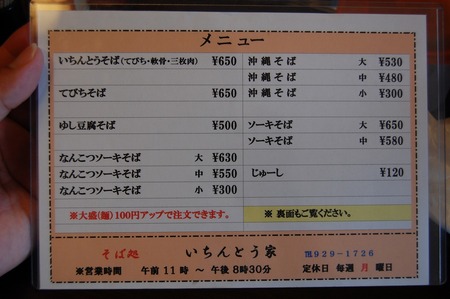 メニュー
いちんとうそば(てびち・軟骨・三枚肉) ¥650
てびちそば ¥650
ゆし豆腐そば ¥500
なんこつソーキそば 大 ¥630
なんこつソーキそば 中 ¥550
なんこつソーキそば 小 ¥300
※大盛(麺)100円アップで注文できます。
沖縄そば 大 ¥530
沖縄そば 中 ¥480
沖縄そば 小 ¥300
ソーキそば 大 ¥650
ソーキそば 中 ¥580
じゅーし ¥120
※ 裏面もご覧ください。
そば処 いちんとう家 ℡929-1726
※営業時間 午前11時 ～ 午後8時30分 定休日 毎週 月 曜日